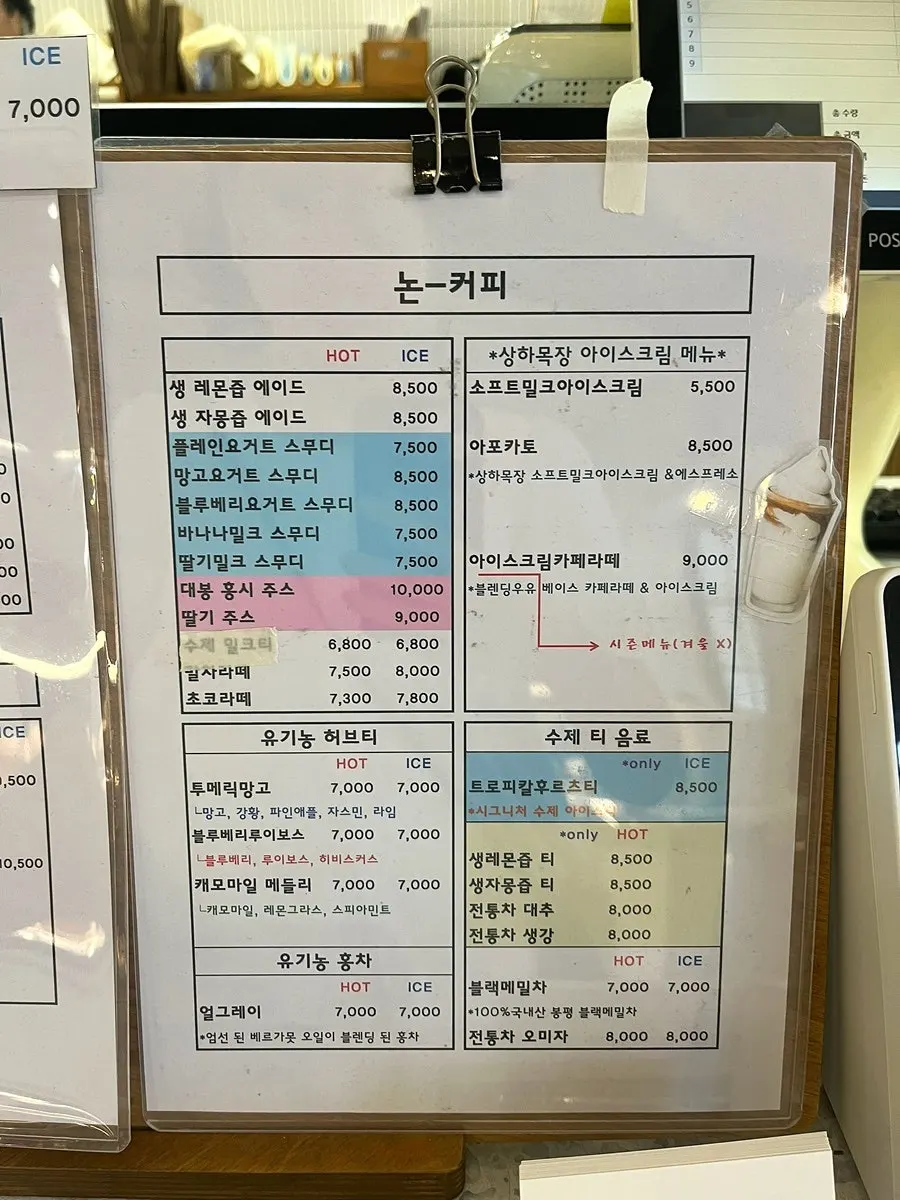 ICE
7,000
5
6
7
8
9
총 수량
총 금액
POS
논-커피
HOT ICE
생 레몬즙 에이드 8,500
생 자몽즙 에이드 8,500
플레인요거트 스무디 7,500
망고요거트 스무디 8,500
블루베리요거트 스무디 8,500
바나나밀크 스무디 7,500
딸기밀크 스무디 7,500
대봉 홍시 주스 10,000
딸기 주스 9,000
수제 밀크티 6,800 6,800
말차라떼 7,500 8,000
초코라떼 7,300 7,800
*상하목장 아이스크림 메뉴*
소프트밀크아이스크림 5,500
아포카토 8,500
*상하목장 소프트밀크아이스크림 &에스프레소
아이스크림카페라떼 9,000
*블렌딩우유 베이스 카페라떼 & 아이스크림
시즌메뉴(겨울 X)
유기농 허브티
HOT ICE
투메릭망고 7,000 7,000
ㄴ망고, 강황, 파인애플, 자스민, 라임
블루베리루이보스 7,000 7,000
ㄴ블루베리, 루이보스, 히비스커스
캐모마일 메들리 7,000 7,000
ㄴ캐모마일, 레몬그라스, 스피아민트
유기농 홍차
HOT ICE
얼그레이 7,000 7,000
*엄선 된 베르가못 오일이 블렌딩 된 홍차
수제 티 음료
*only ICE
트로피칼후르츠티 8,500
*시그니처 수제
*only HOT
생레몬즙 티 8,500
생자몽즙 티 8,500
전통차 대추 8,000
전통차 생강 8,000
HOT ICE
블랙메밀차 7,000 7,000
*100%국내산 봉평 블랙메밀차
전통차 오미자 8,000 8,000
ICE
10,500